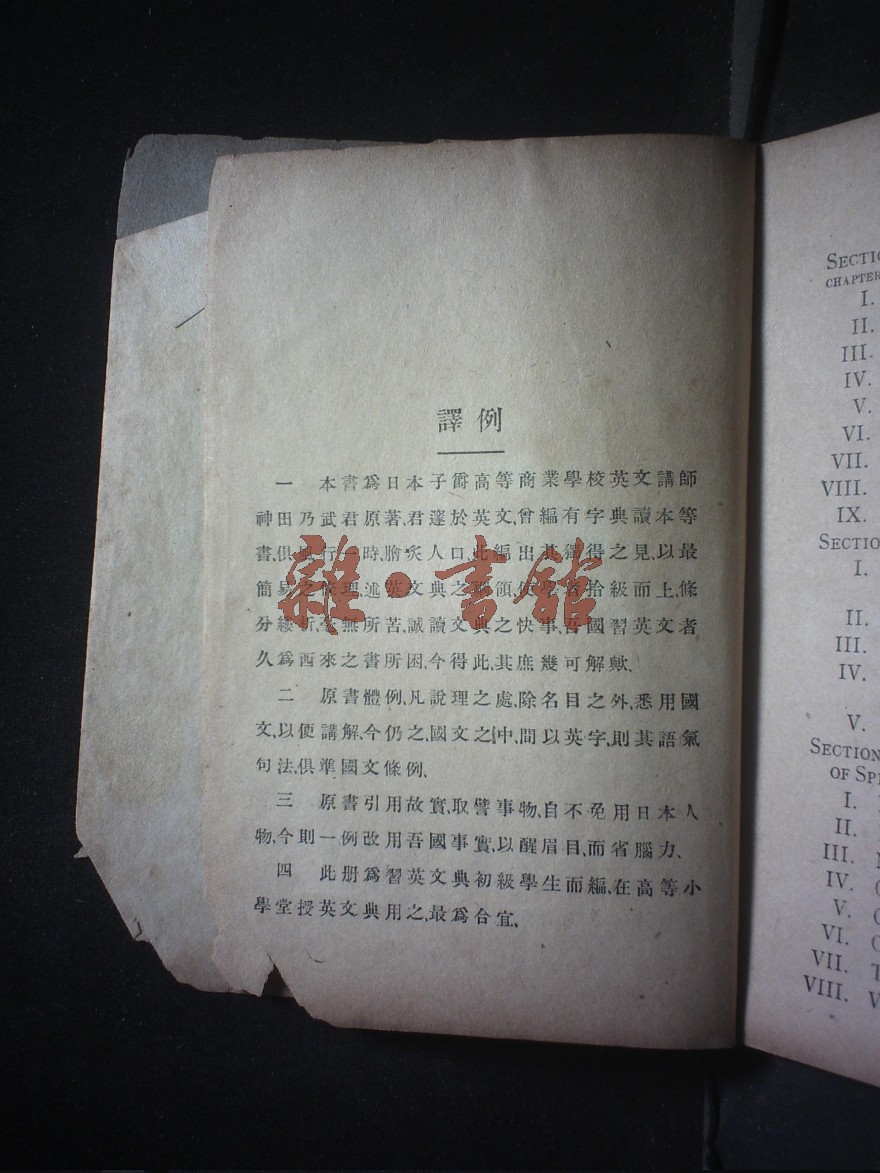 譯例
一 本書爲日本子爵高等商業學校英文講師
神田乃武君原著、君邃於英文、曾編有字典讀本等
書、俱風行一時、膾炙人口、此編出其獨得之見、以最
簡易之條理、述英文典之綱領、使學者拾級而上、條
分縷析、毫無所苦、誠讀文典之快事、吾國習英文者
久爲西來之書所困、今得此、其庶幾可解歟、
二 原書體例、凡說理之處、除名目之外、悉用國
文、以便講解、今仍之、國文之中、間以英字、則其語氣
句法、俱準國文條例、
三 原書引用故實、取譬事物、自不免用日本人
物、今則一例改用吾國事實、以醒眉目、而省腦力、
四 此册爲習英文典初級學生而編、在高等小
學堂授英文典用之、最爲合宜、
雜·書館
SECTIO
CHAPTER
I.
II.
III.
IV.
V.
VI.
VII.
VIII.
IX.
SECTIO
I.
II.
III.
IV.
V.
SECTION
OF SP
I.
II.
III.
IV.
V.
VI.
VII.
VIII.